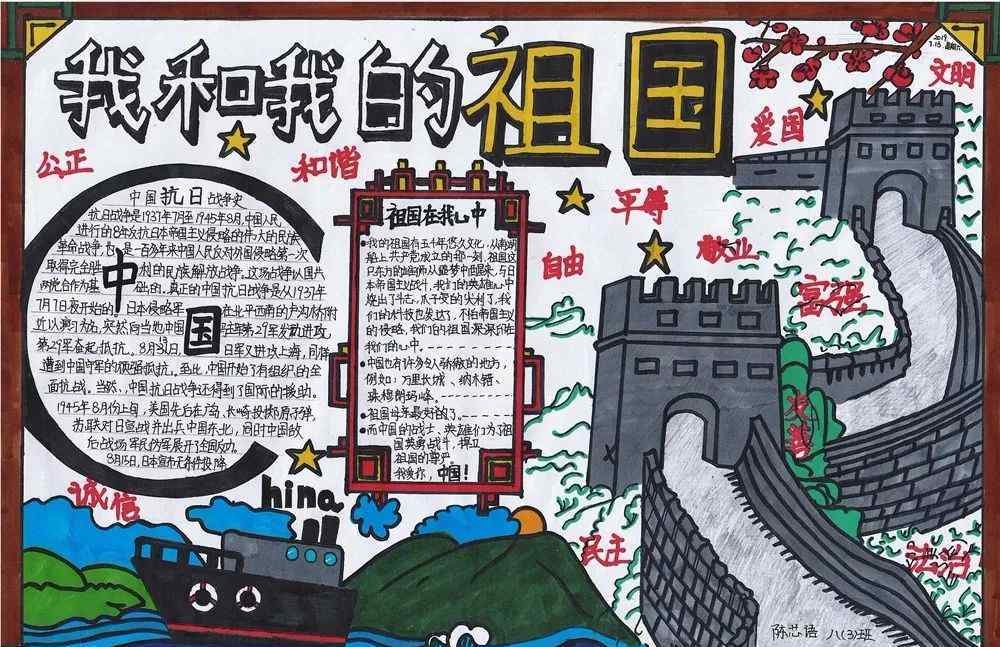 我和我的祖国
2019
7.13 星期六
文明
爱国
公正
和谐
平等
自由
敬业
富强
友善
诚信
民主
法治
中国抗日战争史
抗日战争是1937年7月至1945年8月,中国人民
进行的8年反抗日本帝国主义侵略的伟大的民族
革命战争,也是一百多年来中国人民反对外国侵略第一次
取得完全胜利的民族解放战争。这场战争以国共
两党合作为基础的。真正的中国抗日战争是从1937年
7月7日夜开始的,日本侵略军在北平西南的卢沟桥附
近以演习为名,突然向当地中国驻军第29军发动进攻,
第29军奋起抵抗。8月13日,日军又进攻上海,同样
遭到中国守军的顽强抵抗。至此,中国开始了有组织的全
面抗战。当然,中国抗日战争还得到了国际的援助。
1945年8月份上旬,美国先后在广岛、长崎投掷原子弹,
苏联对日宣战并出兵中国东北,同时中国敌
后战场军民伪军展开了全国反功。
8月15日,日本宣布无条件投降
中
国
hina
祖国在我心中
●我的祖国有五千年悠久文化,从南湖
船上共产党成立的那一刻,祖国这
只东方的雄狮从噩梦中醒来,与日
本帝国主义战斗,我们的英雄心中
烧出了斗志,爪子变的尖利了,我
们的村枝也发达了,不怕帝国主义
的侵略,我们的祖国深深印在
我们的心中。
●中国也有许多令人骄傲的地方,
例如:万里长城、纳木错、
珠穆朗玛峰。
●祖国母亲最好的了。
●而中国的战士、英雄们为了祖
国英勇战斗,捍卫
祖国的尊严
我爱你,中国!
陈芯语 八(3)班